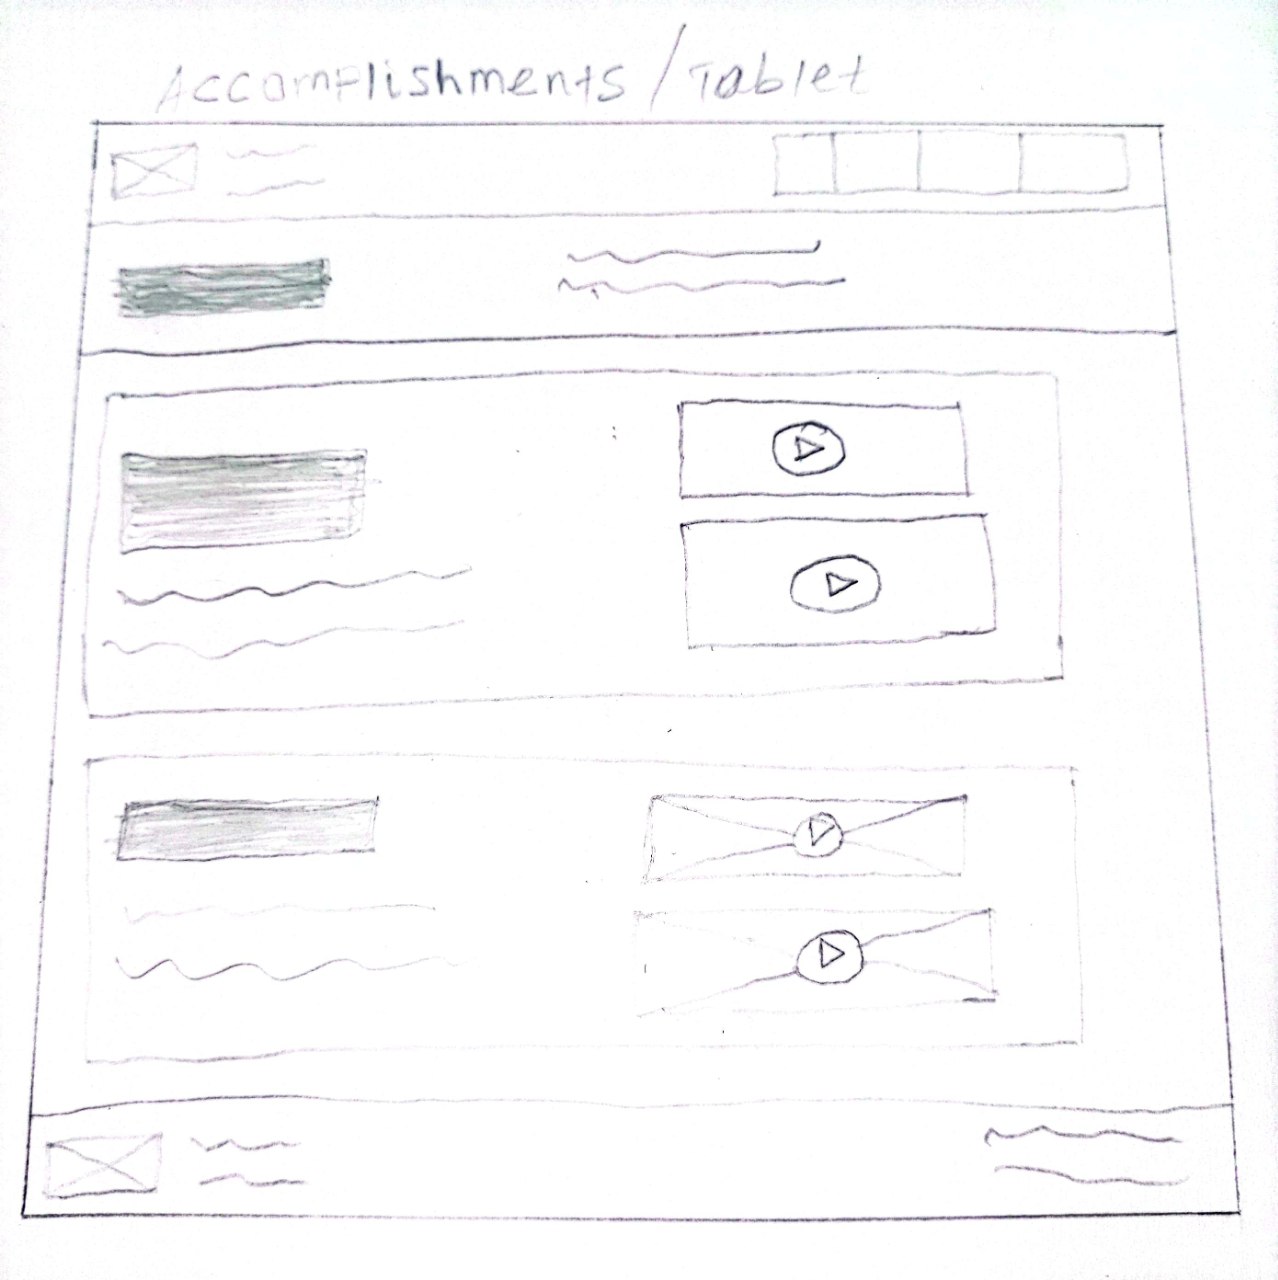 Accomplishments / Tablet